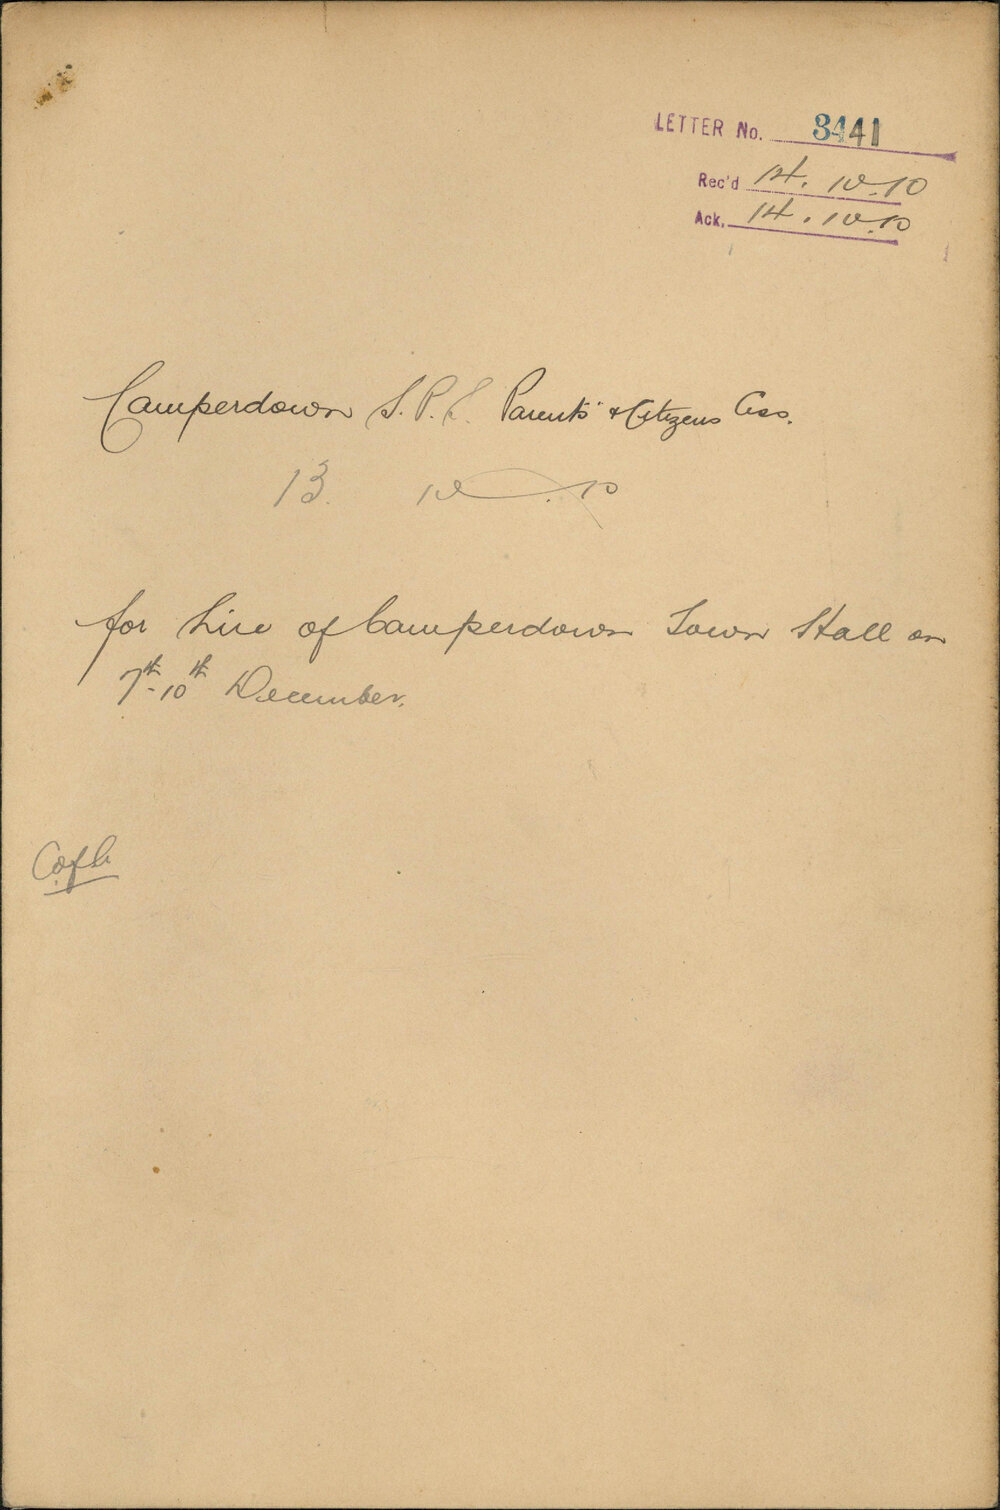 LETTER No. 3441
Rec'd 14.10.10
Ack. 14.10.10
Camperdown S.P.S. Parents' & Citizens Ass.
13 10 . 10
for hire of Camperdown Town Hall on
7th-10th December.